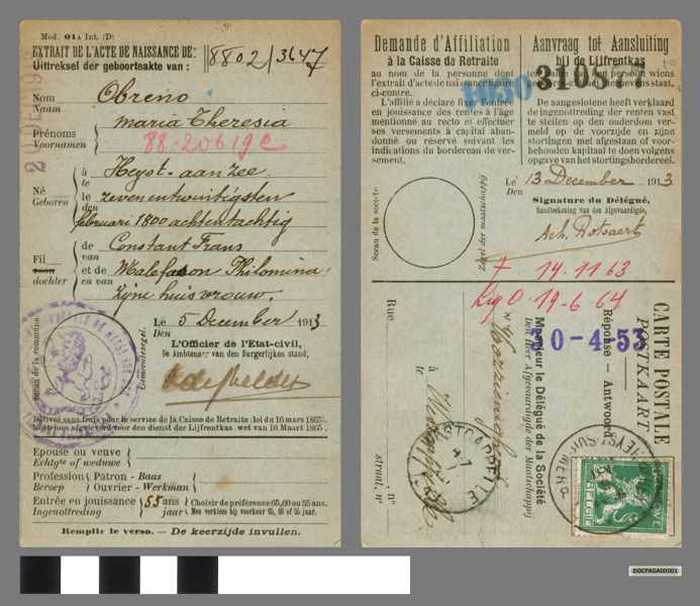 Mod. 01A Int. (D)
EXTRAIT DE L'ACTE DE NAISSANCE DE:
Uittreksel der geboorteakte van :
8802/3647
Nom
Naam
Obreno
Maria Theresia
Prénoms
Voornamen
88-20619c
à
te
Heyst-aan zee
Né
Geboren
le
den
zevenentwintigsten
februari 1800 achtentachtig
Fil
dochter
de
van
Constant Frans
et de
en van
Philomina
zijne huisvrouw.
Le
Den
5 December 1913
Sceau de la commune
Gemeentezegel.
L'Officier de l'Etat-civil,
De Ambtenaar van den Burgerlijken stand,
Délivré sans frais pour le service de la Caisse de Retraite (loi du 16 mars 1865.
dienst der Lijfrentkas wet van 16 Maart 1865.
Epouse ou veuve
Echtgte of weduwe
Profession
Beroep
Patron - Baas
Ouvrier - Werkman
Entrée en jouissance
Ingenottreding
55 ans
jaar
Choisir de préférence 65, 60 ou 55 ans.
Men verkieze bij voorkeur 65, 60 of 55 jaar.
Remplir le verso. — De keerzijde invullen.
Demande d'Affiliation
à la Caisse de Retraite
au nom de la personne dont
l'extrait d'acte de naissance
ci-contre.
L'affilié a déclaré fixer l'entrée
en jouissance des rentes à l'âge
mentionné au recto et effectuer
ses versements à capital aban-
donné ou réservé suivant les
indications du bordereau de ver-
sement.
Aanvraag tot Aansluiting
bij de Lijfrentkas
1030
310877
De aangeslotene heeft verklaard
de ingenottreding der renten vast
te stellen op den ouderdom ver-
meld op de voorzijde en zijne
stortingen met afgestaan of voor-
behouden kapitaal te doen volgens
opgave van het stortingsborderel.
Le
Den
13 December 1913
Signature du Délégué,
Handteekening van den Afgevaardigde,
Ach. Rotsaert
Sceau de la société
Zegel der maatschappij
+ 14.11 63
Lig O. 19-6 64
CARTE POSTALE
POSTKAART
Réponse — Antwoord
0-4-53
Monsieur le Délégué de la Société
Den Heer Afgevaardigde der Maatschappij
à
te
Rue
straat, nº
nº
WESTCAPELLE
HEYST-SUR-MER
BELGIE
DOCPAGA00001